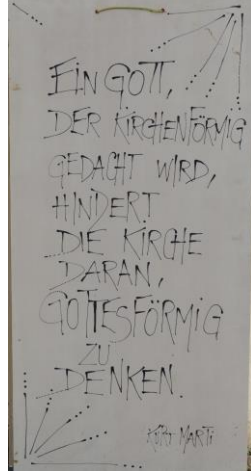 EIN GOTT,
DER KIRCHENFÖRMIG
GEDACHT WIRD,
HINDERT
DIE KIRCHE
DARAN,
GOTTESFÖRMIG
ZU
DENKEN.
KURT MARTI